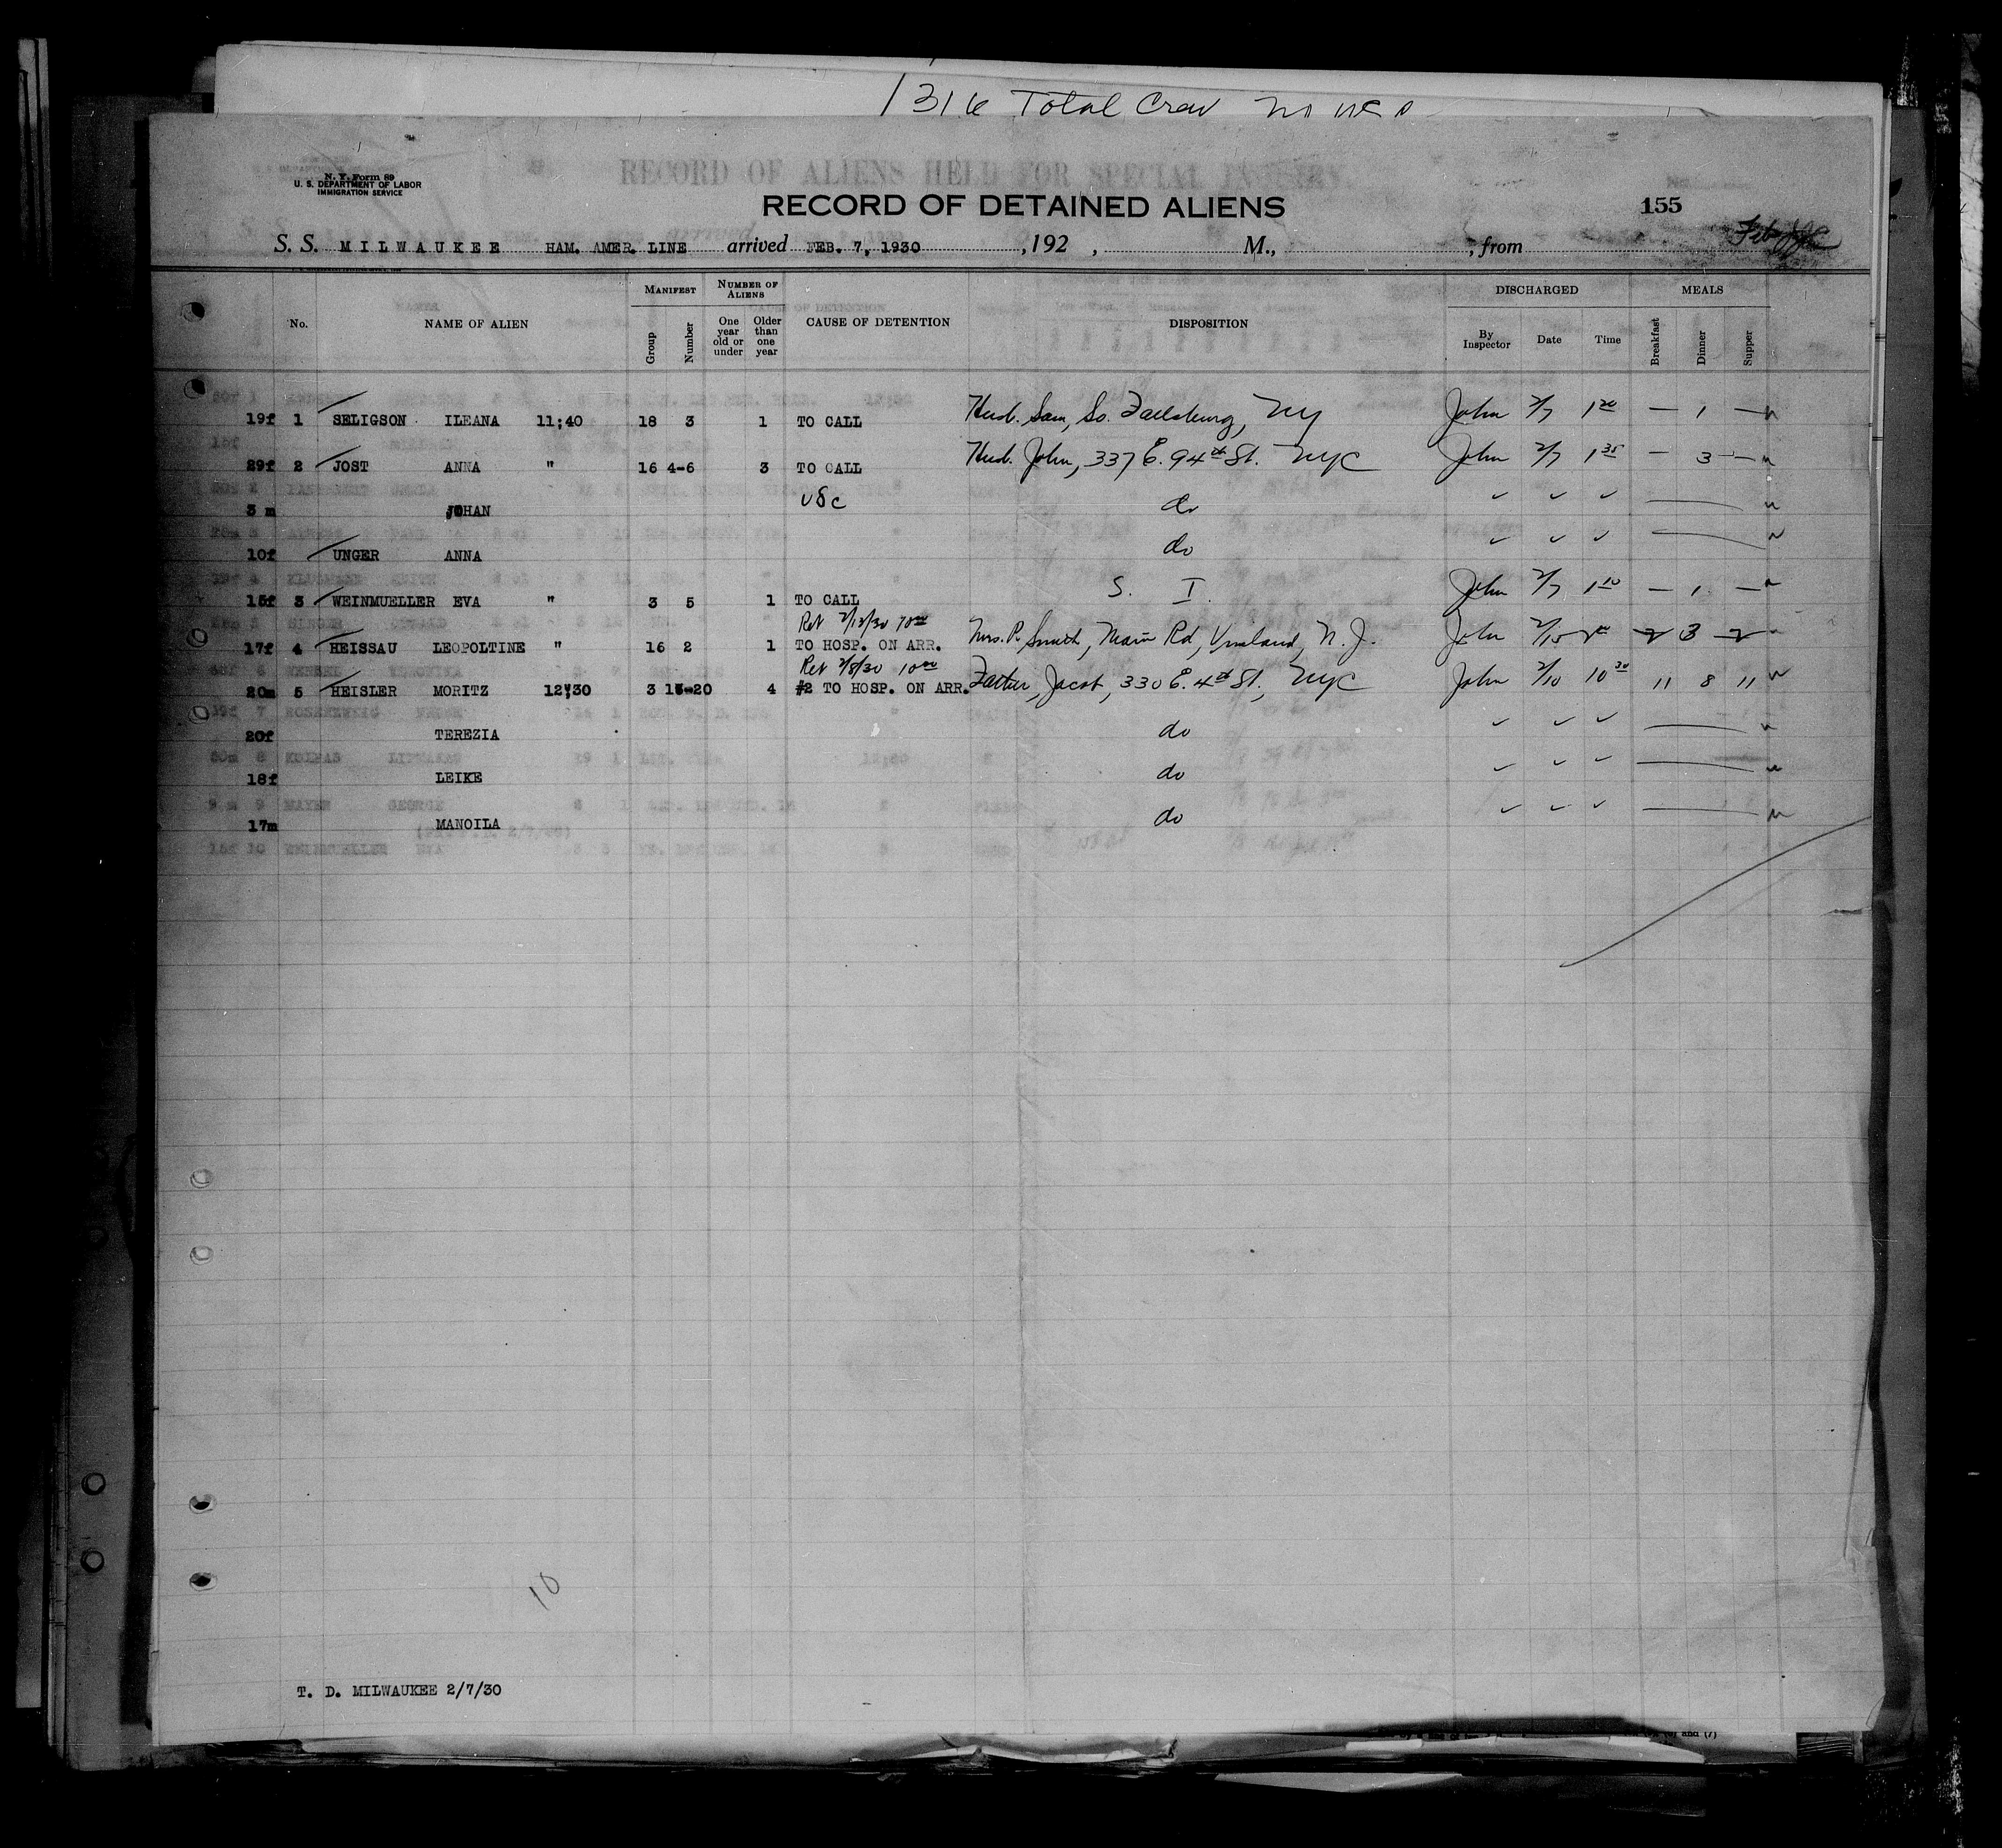 1316 Total Crew
N. Y. Form 89
U. S. DEPARTMENT OF LABOR
IMMIGRATION SERVICE
RECORD OF ALIENS HELD FOR SPECIAL INQUIRY.
RECORD OF DETAINED ALIENS
155
S. S. MILWAUKEE HAM. AMER. LINE arrived FEB. 7, 1930 , 192 , M., , from
No. NAME OF ALIEN MANIFEST Group Number NUMBER OF ALIENS One year old or under Older than one year CAUSE OF DETENTION DISPOSITION DISCHARGED By Inspector Date Time MEALS Breakfast Dinner Supper
19f 1 SELIGSON ILEANA 11;40 18 3 1 TO CALL Husb. Sam, So. Fallsburg, NY John 2/7 1 20 — 1 —
29f 2 JOST ANNA " 16 4-6 3 TO CALL Husb. John, 337 E. 94th St. NYC John 2/7 1 35 — 3 —
3 m JOHAN USC do
10f UNGER ANNA do
15f 3 WEINMUELLER EVA " 3 5 1 TO CALL S. I. John 2/7 1 10 — 1 —
Ret 2/15/30
17f 4 HEISSAU LEOPOLTINE " 16 2 1 TO HOSP. ON ARR. Mrs. P. Smith, Main Rd, Vineland, N. J. John 2/15 2 3 2
Ret 2/8/30 10 00
20m 5 HEISLER MORITZ 12;30 3 -20 4 #2 TO HOSP. ON ARR. Father, Jacob, 330 E. 4th St., NYC John 2/10 10 30 11 8 11
20f TEREZIA do
18f LEIKE do
17m MANOILA do
10
T. D. MILWAUKEE 2/7/30
and (7)